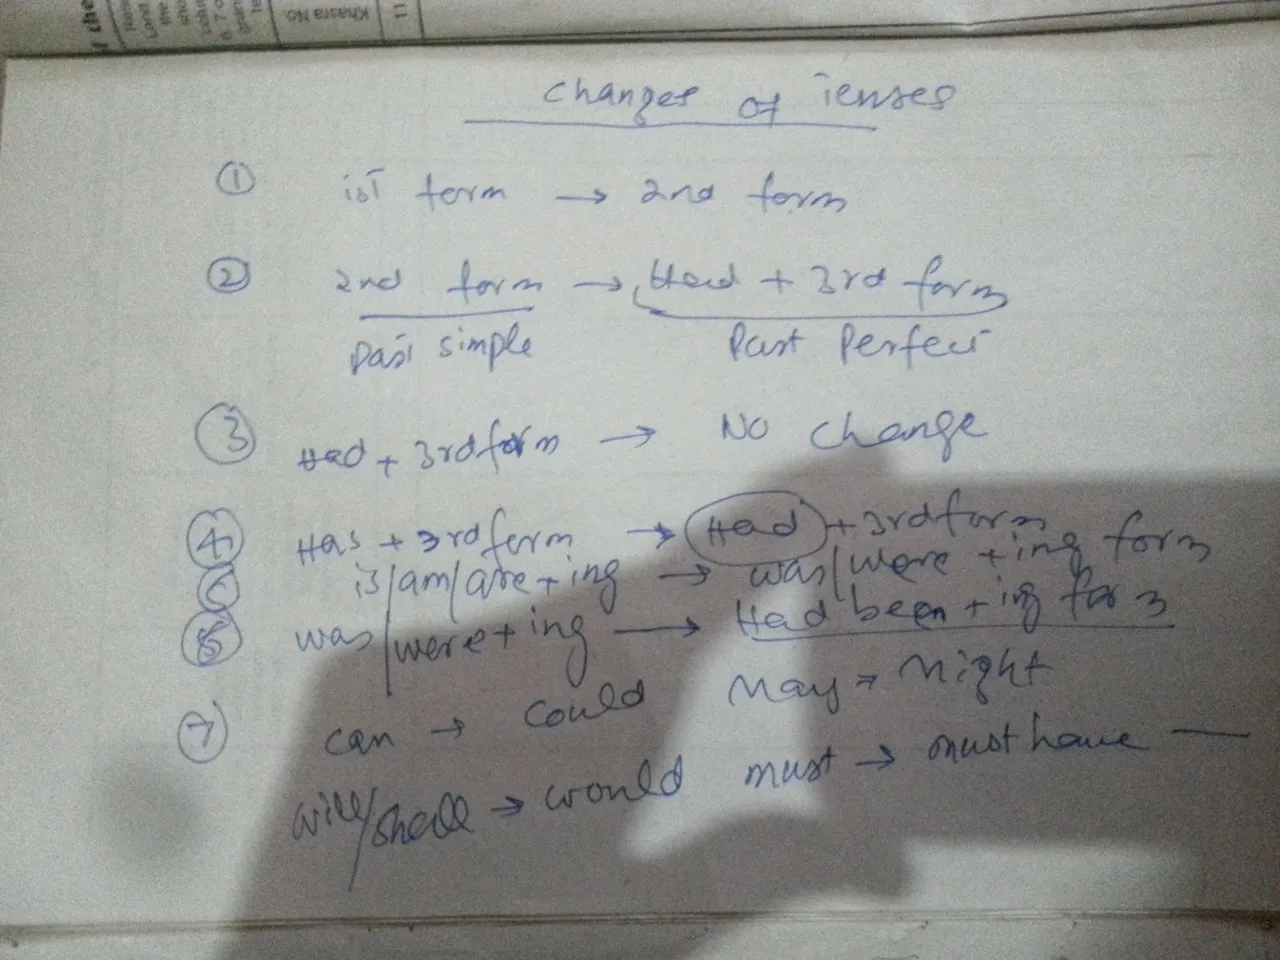 Khasra No
11
changes of Tenses
① ist form → 2nd form
② 2nd form → Had + 3rd form
Past simple Past Perfect
③ Had + 3rd form → No change
④ Has + 3rd form → Had + 3rd form
is/am/are + ing → was/were + ing form
was/were + ing → Had been + ing form
⑦ can → could May → Might
will/shall → would must → must have —